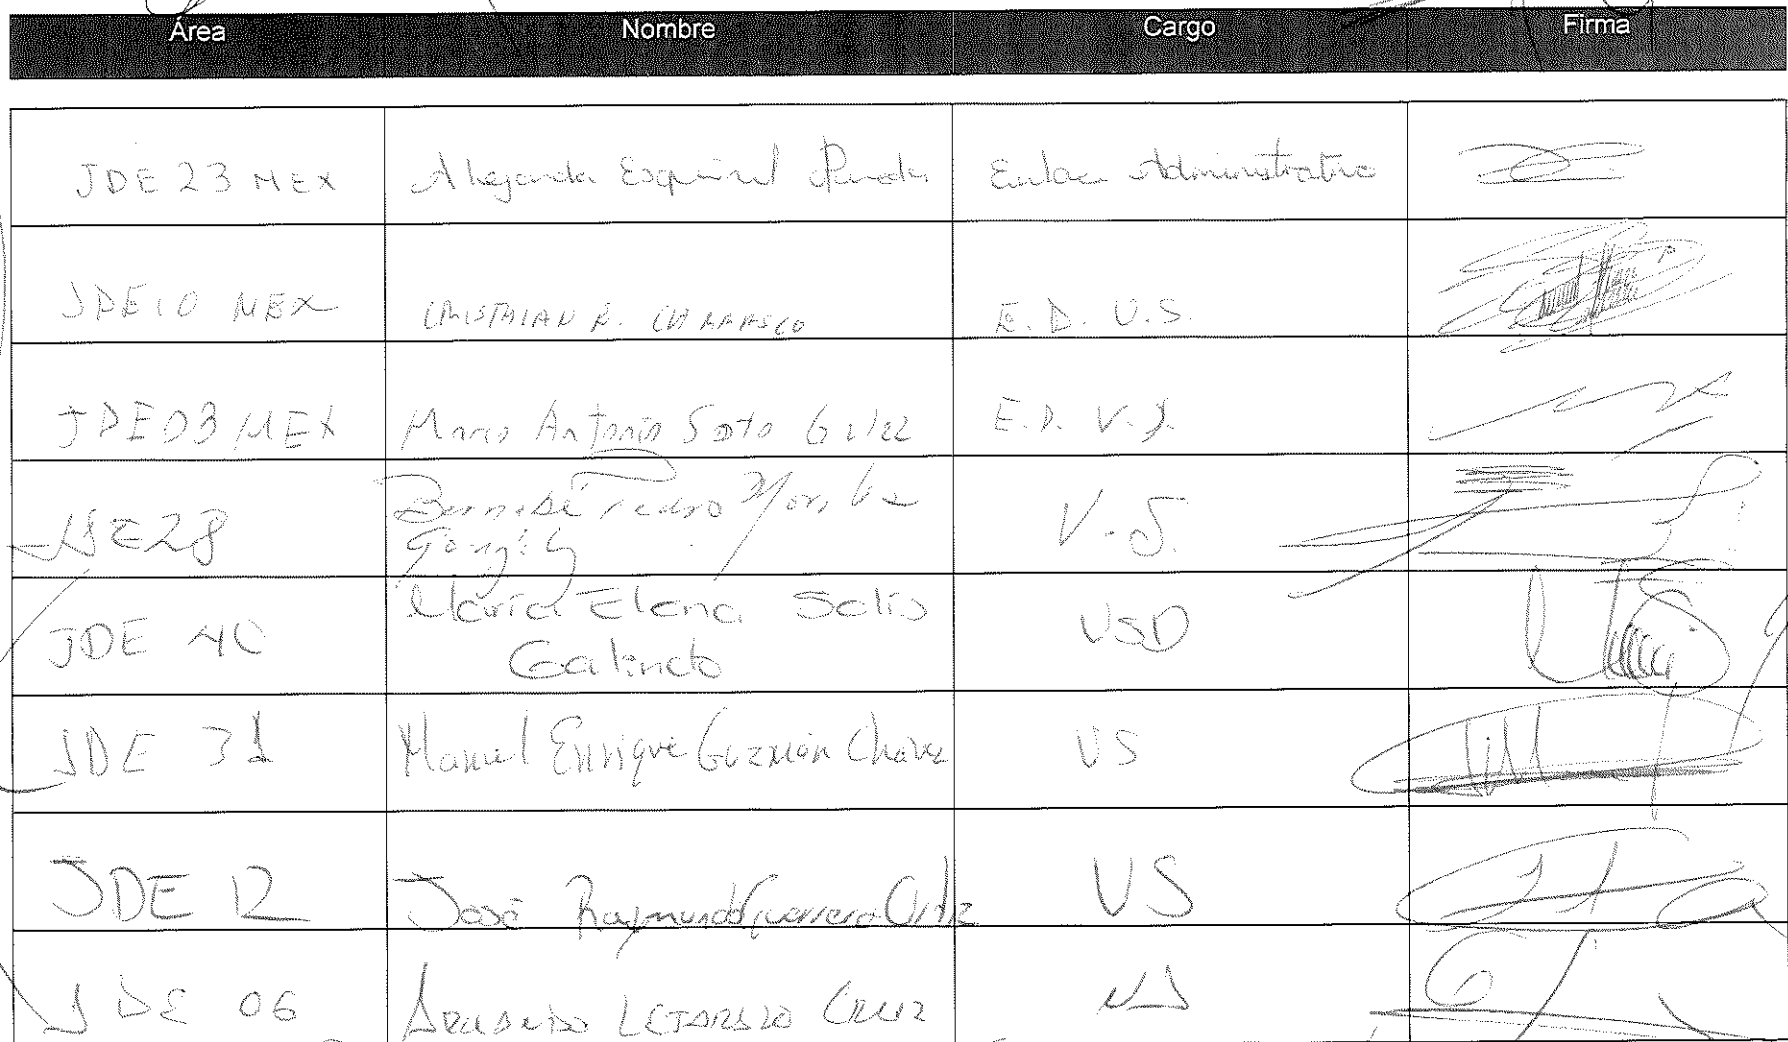 Área Nombre Cargo Firma
JDE 23 MEX Alejandra Esquivel Enlace Administrativo
JDE 10 MEX CRISTHIAN R. CARRASCO E.D. V.S.
JDE 03 MEX Marco Antonio Soto E.D. V.S.
JDE 28 Bernabé Pedro V.S.
JDE 40 María Elena Solis
Galindo VSD
JDE 31 Manuel Enrique Guzmán Chávez VS
JDE 12 José Raymundo Guerrero Ortiz VS
JDE 06 Cruz